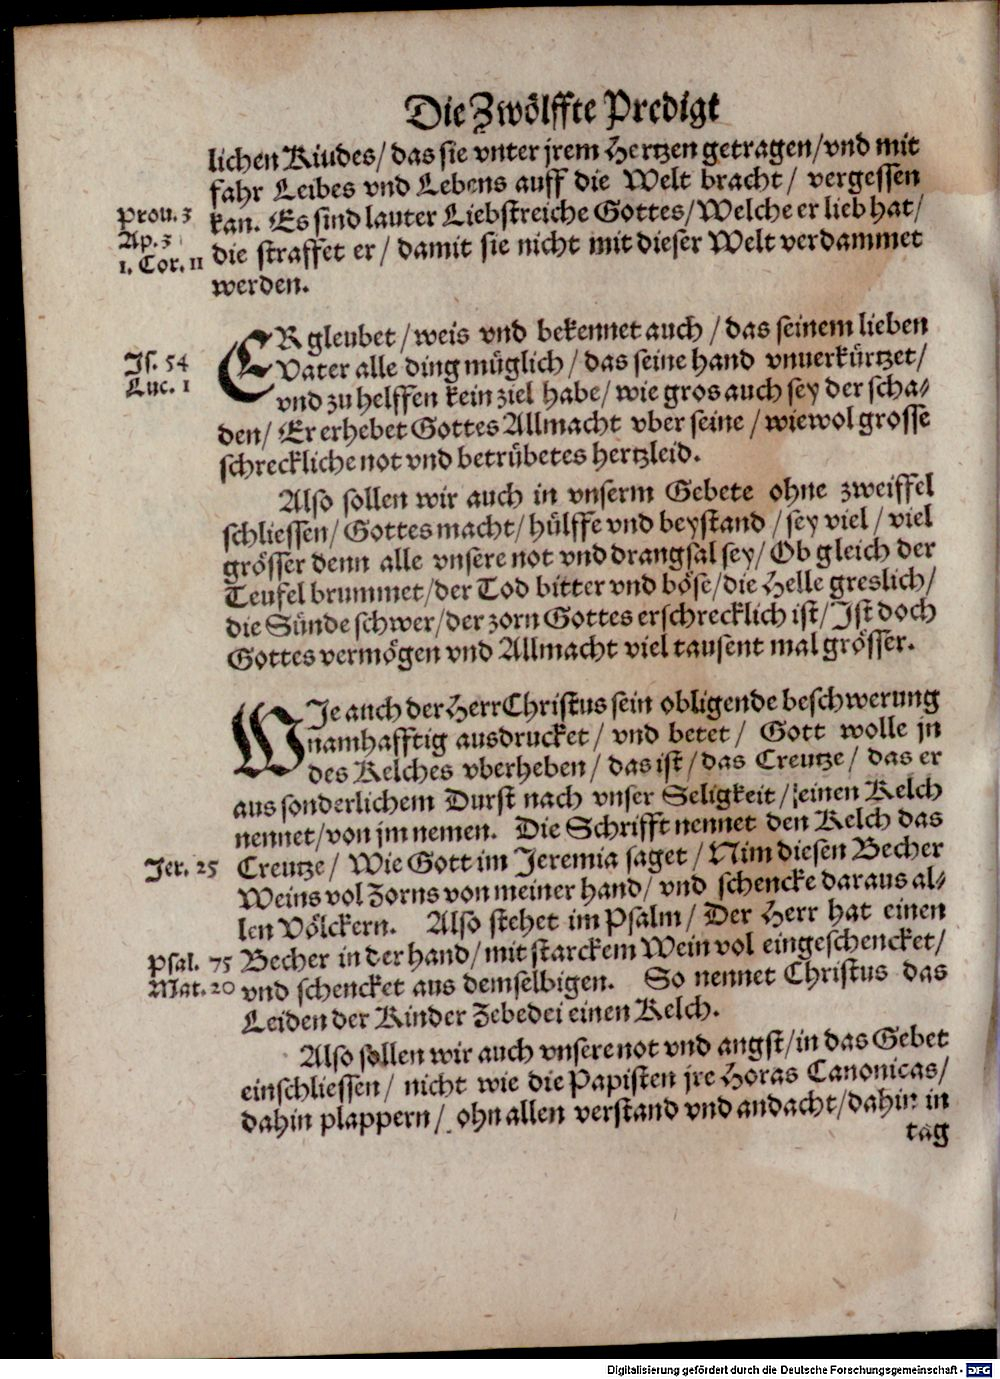 Die Zwölffte Predigt
lichen Kindes/ das sie vnter jrem Hertzen getragen/vnd mit
fahr Leibes vnd Lebens auff die Welt bracht/ vergessen
Prou. 3 kan. Es sind lauter Liebstreiche Gottes/ Welche er lieb hat/
Ap. 3
1. Cor. 11 die straffet er/ damit sie nicht mit dieser Welt verdammet
werden.
ER gleubet/ weis vnd bekennet auch/ das seinem lieben
Js. 54 Vater alle ding müglich/ das seine hand vnuerkürtzet/
Luc. 1 vnd zu helffen kein ziel habe/ wie gros auch sey der scha-
den/ Er erhebet Gottes Allmacht vber seine/ wiewol grosse
schreckliche not vnd betrübetes hertzleid.
Also sollen wir auch in vnserm Gebete ohne zweiffel
schliessen/ Gottes macht/ hülffe vnd beystand/ sey viel/ viel
grösser denn alle vnsere not vnd drangsal sey/ Ob gleich der
Teufel brummet/der Tod bitter vnd böse/die Helle greslich/
die Sünde schwer/der zorn Gottes erschrecklich ist/ Jst doch
Gottes vermögen vnd Allmacht viel tausent mal grösser.
WJe auch der Herr Christus sein obligende beschwerung
namhafftig ausdrucket/ vnd betet/ Gott wolle jn
des Kelches vberheben/ das ist/ das Creutze/ das er
aus sonderlichem Durst nach vnser Seligkeit/ seinen Kelch
nennet/von jm nemen. Die Schrifft nennet den Kelch das
Jer. 25 Creutze/ Wie Gott im Jeremia saget/ Nim diesen Becher
Weins vol Zorns von meiner hand/ vnd schencke daraus al-
len Völckern. Also stehet im Psalm/ Der Herr hat einen
Psal. 75 Becher in der hand/ mit starckem Wein vol eingeschencket/
Mat. 20 vnd schencket aus demselbigen. So nennet Christus das
Leiden der Kinder Zebedei einen Kelch.
Also sollen wir auch vnsere not vnd angst/in das Gebet
einschliessen/ nicht wie die Papisten jre Horas Canonicas/
dahin plappern/ ohn allen verstand vnd andacht/dahin in
tag
Digitalisierung gefördert durch die Deutsche Forschungsgemeinschaft - DFG